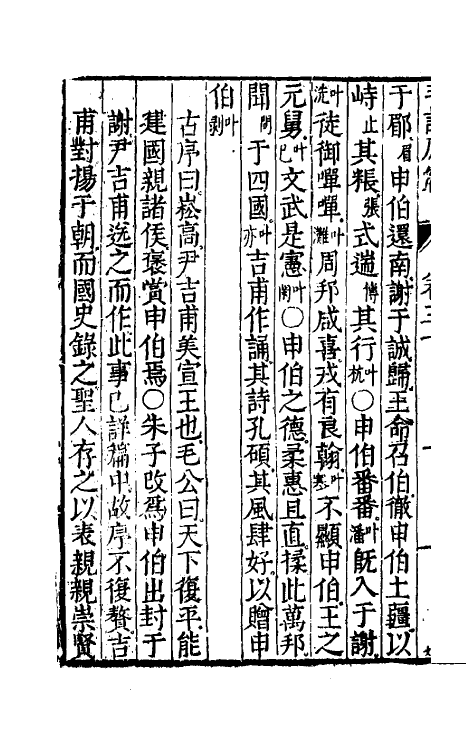 于郿眉申伯還南謝于誠歸王命召伯徹申伯土疆以
峙止其粻張式遄慱其行叶杭〇申伯番番叶潘旣入于謝
叶洗徒御嘽嘽叶灘周邦咸喜戎有良翰叶寒不顯申伯王之
元舅叶已文武是憲叶闌〇申伯之德柔惠且直揉此萬邦
聞問于四國叶亦吉甫作誦其詩孔碩其風肆好以贈申
伯叶剥
古序曰崧高尹吉甫美宣王也毛公曰天下復平能
建國親諸侯褒賞申伯焉〇朱子改爲申伯出封于
謝尹吉甫送之而作此事已詳篇中故序不復贅吉
甫對揚于朝而國史錄之聖人存之以表親親崇賢